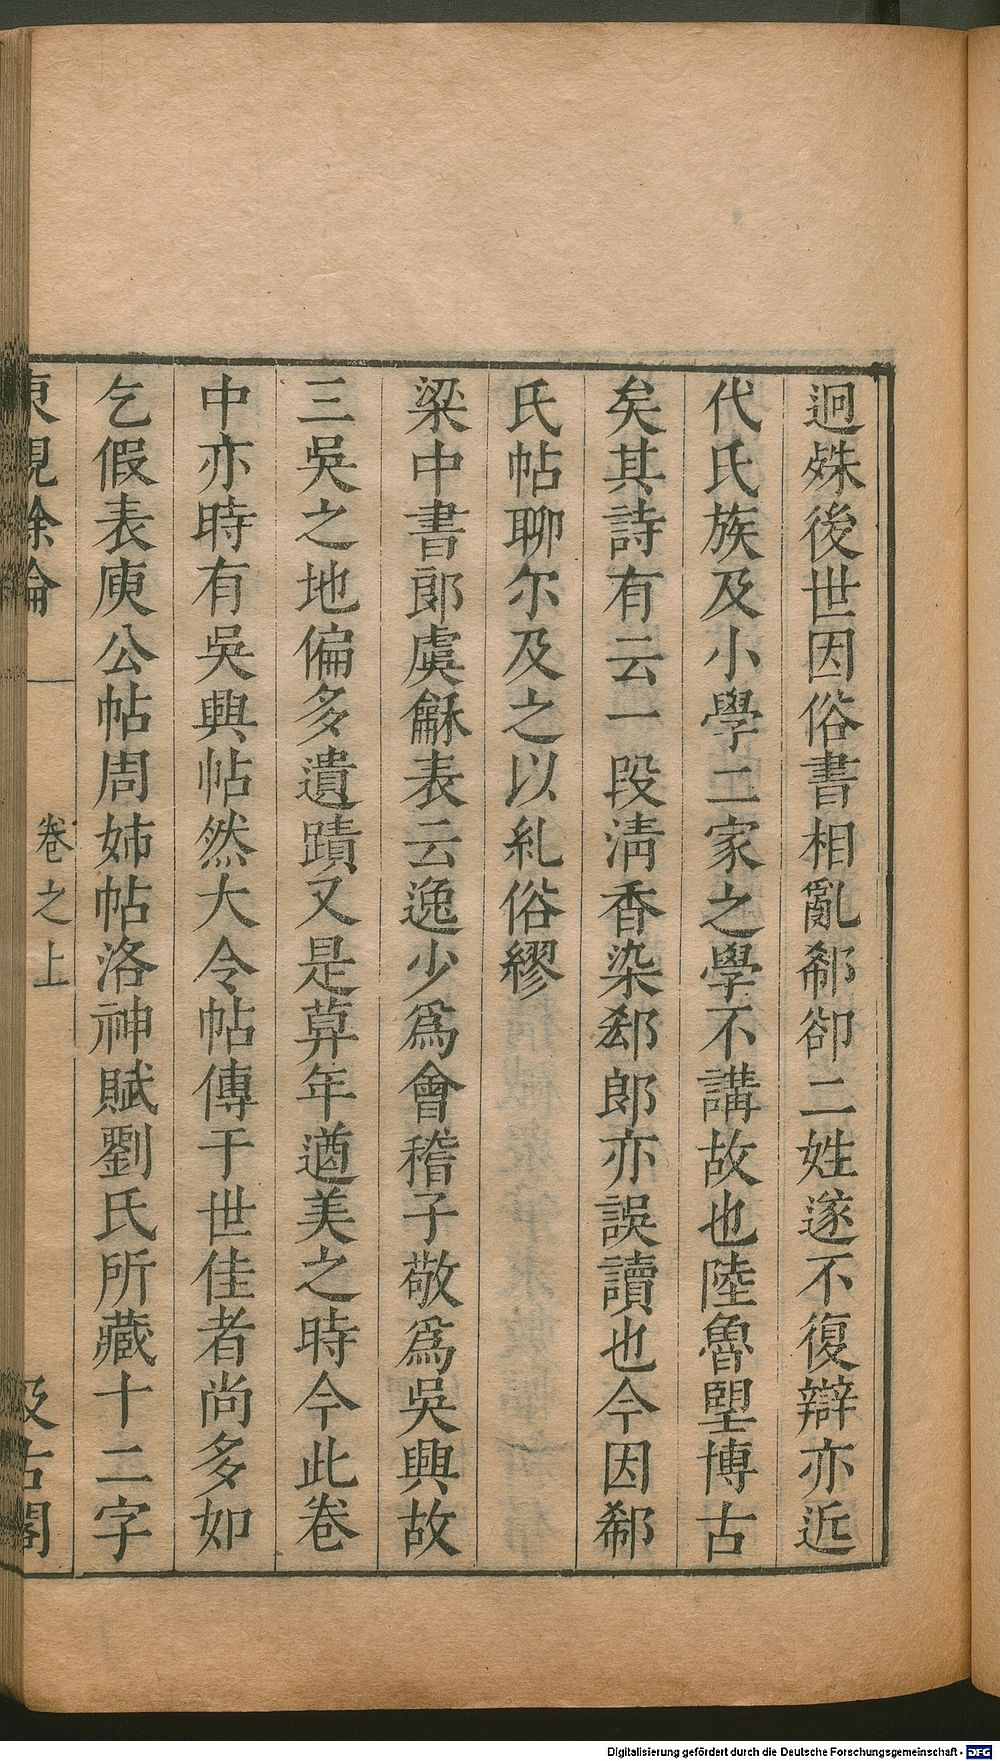 迥殊後世因俗書相亂郗卻二姓遂不復辯亦近
代氏族及小學二家之學不講故也陸魯朢博古
矣其詩有云一段清香染郄郎亦誤讀也今因郗
氏帖聊尔及之以糺俗繆
梁中書郎虞龢表云逸少為會稽子敬為吳興故
三吳之地偏多遺蹟又是暮年遒美之時今此卷
中亦時有吳興帖然大令帖傳于世佳者尚多如
乞假表庾公帖周姊帖洛神賦劉氏所藏十二字
東觀餘論 卷之上 汲古閣
Digitalisierung gefördert durch die Deutsche Forschungsgemeinschaft - DFG